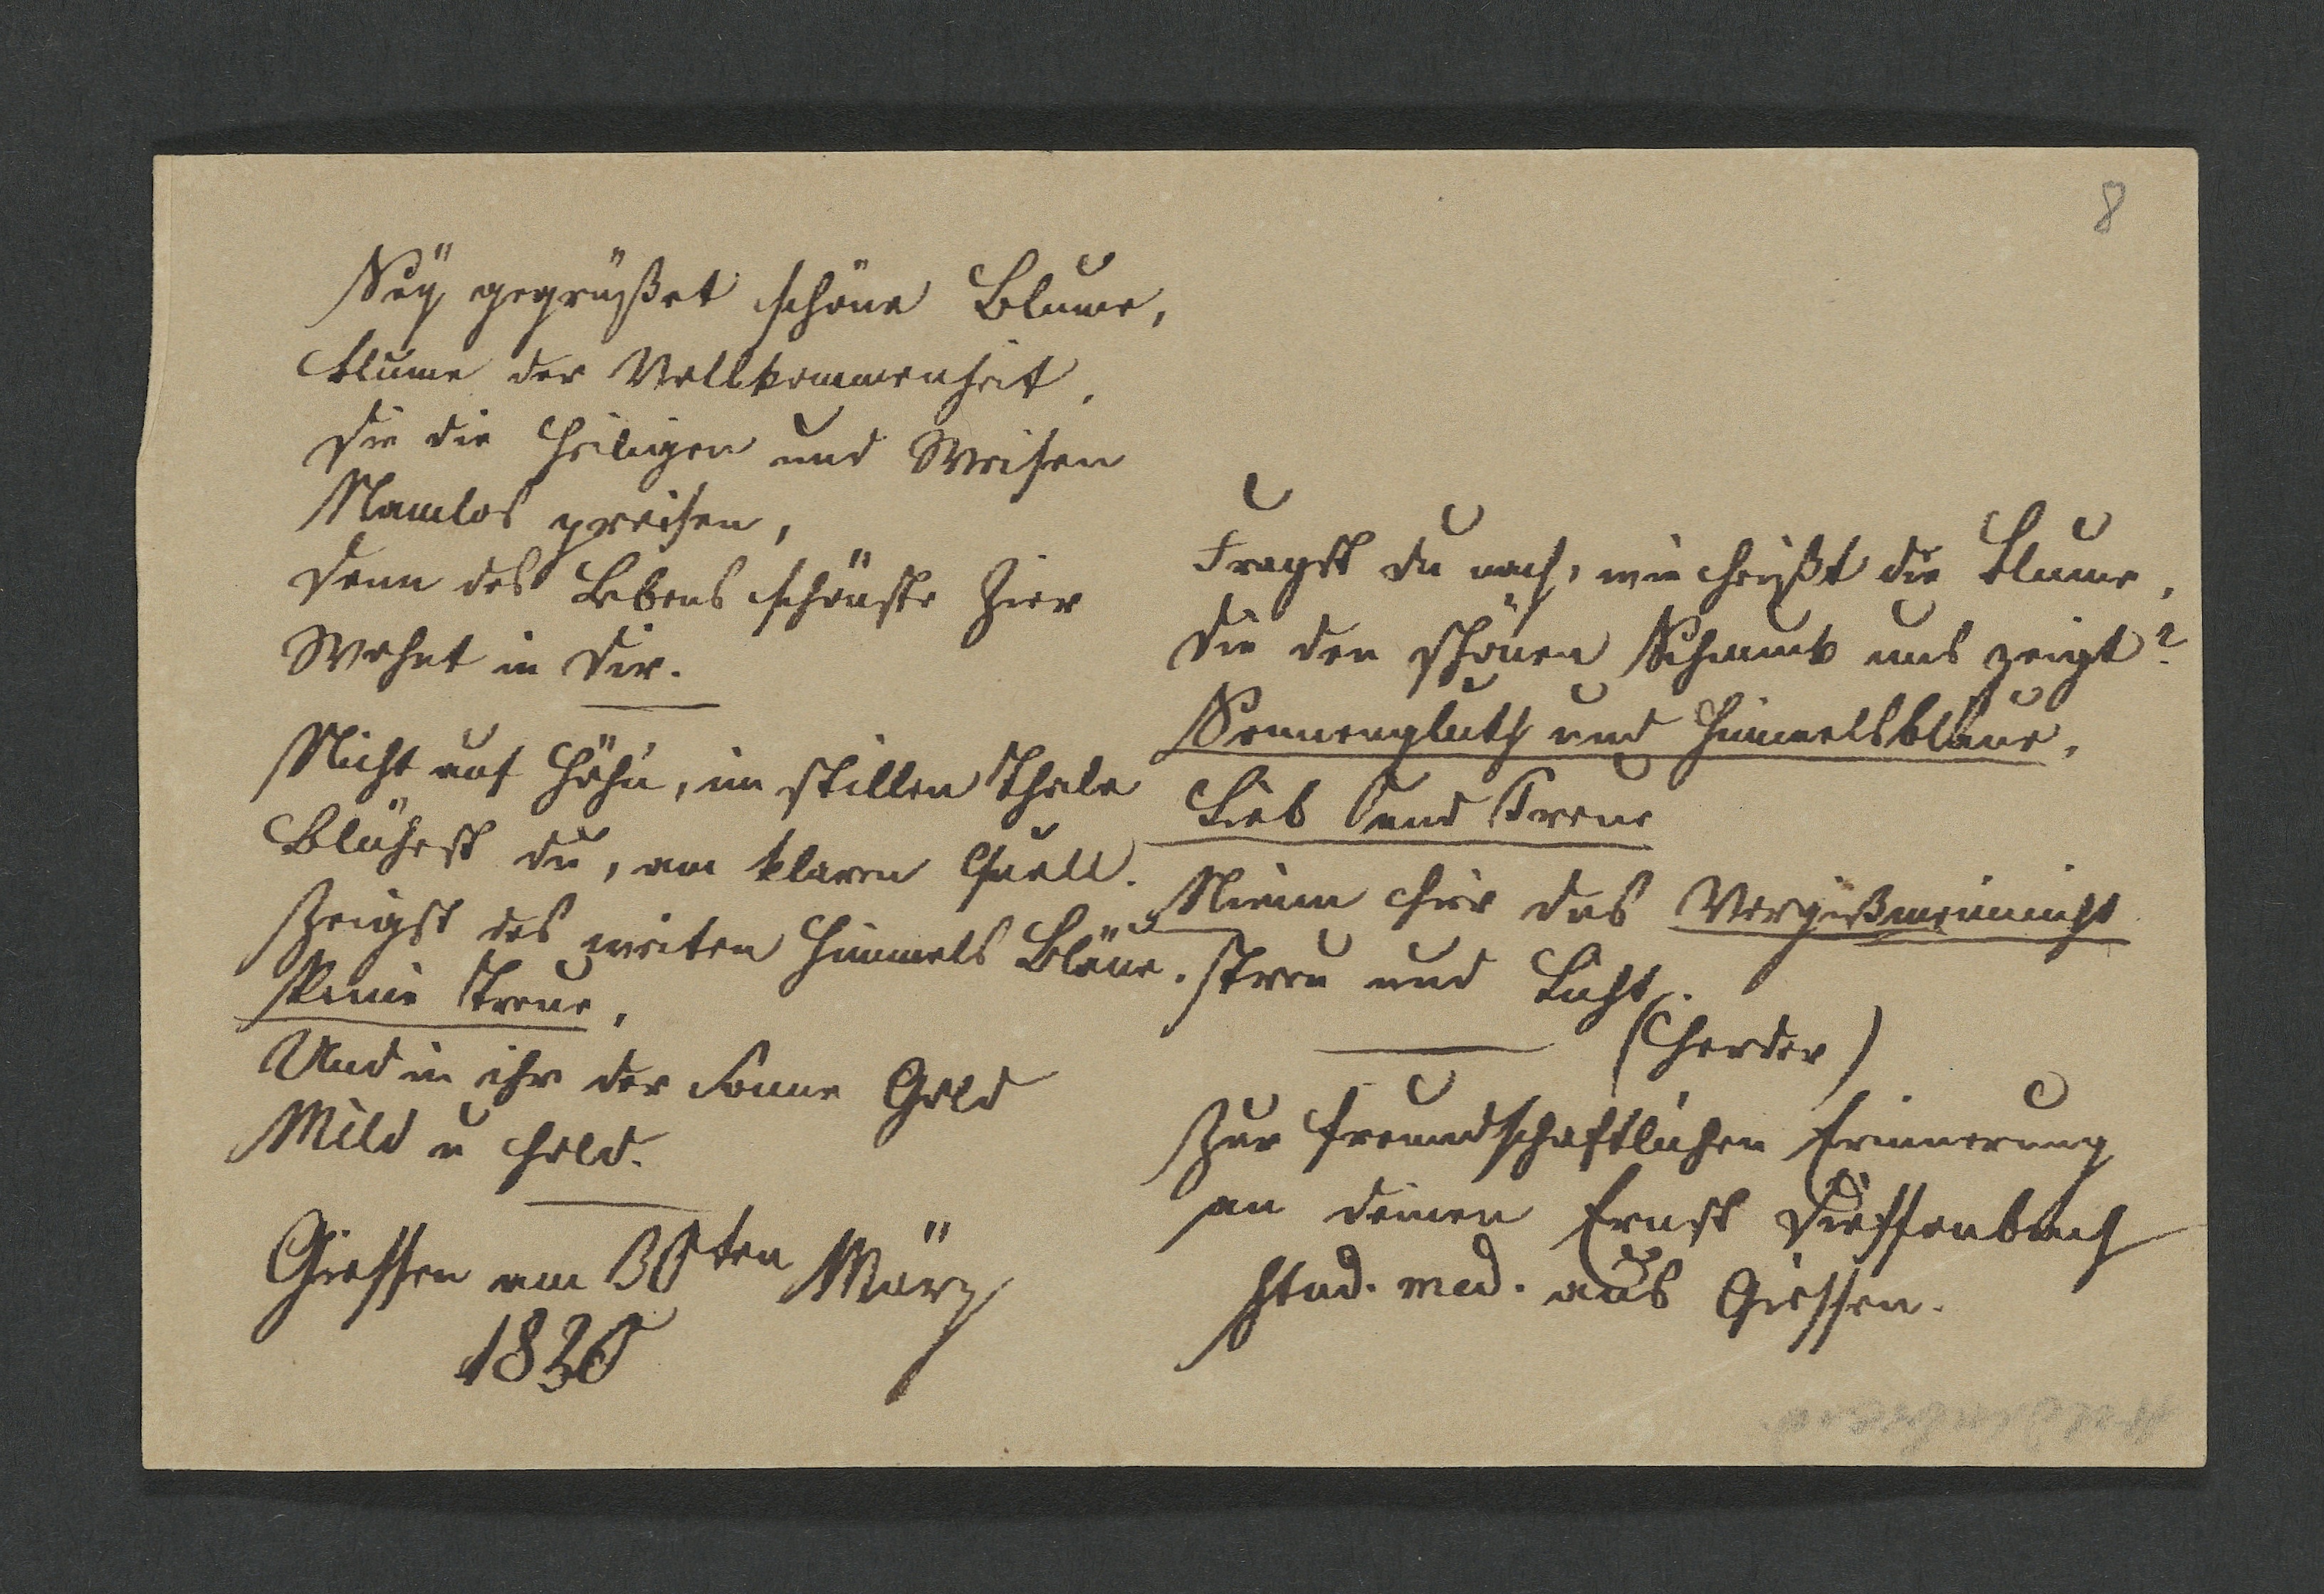 8
Sey gegrüßet schöne Blume,
Blume der Vollkommenheit,
Die die Heiligen und Weisen
Namlos preisen,
Denn des Lebens schönste Zier
Wohnt in Dir.
Nicht auf Höhn, im stillen Thale
Blühest du, am klaren Quell.
Zeigst des weiten Himmels Bläue.
Treue,
Und in ihr der Sonne Gold
Mild u hold.
Giessen am 30ten März
1830
Fragst du nach, wie heißt die Blume,
Die den schönen Schmuck uns zeigt?
Sonnengluth und Himmelsblaue,
Lieb und Treue
Nimm hier das Vergißmeinnicht
Treu und Licht.
(Herder)
Zur freundschaftlichen Erinnerung
an deinen Ernst Dieffenbach
stud. med. aus Giessen.